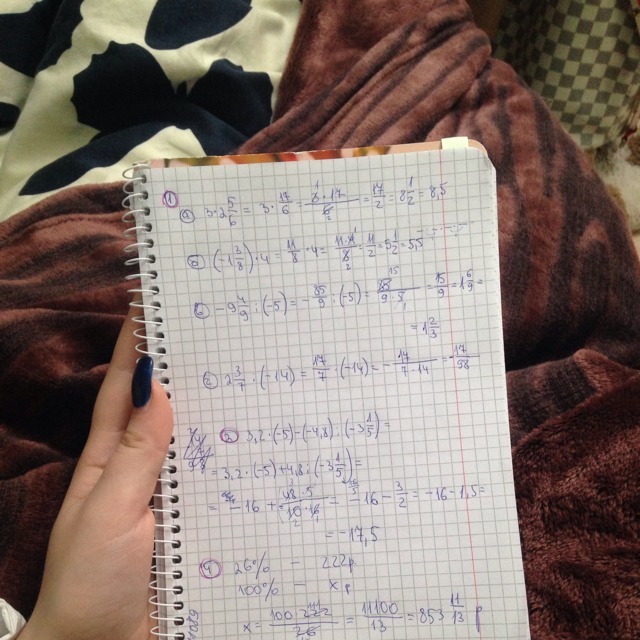 1
а) 3·2 5/6 = 3·17/6 = 3·17/6 = 17/2 = 8 1/2 = 8,5
б) (-1 3/8)·4 = 11/8·4 = 11·4/8 = 11/2 = 5 1/2 = 5,5
в) -9 4/9 : (-5) = -85/9 : (-5) = 85/9·5 = 15/9 = 1 6/9 =
= 1 2/3
г) 2 3/7 : (-14) = 17/7 : (-14) = -17/7·14 = -17/98
3,2·(-5)-(-4,8):(-3 1/5)=
= 3,2·(-5)+4,8:(-3 1/5)=
= -16 + 48·5/10·16 = 16 - 3/2 = -16-1,5=
= -17,5
26% — 222р
100% — x р
x = 100·222/26 = 11100/13 = 853 11/13 р